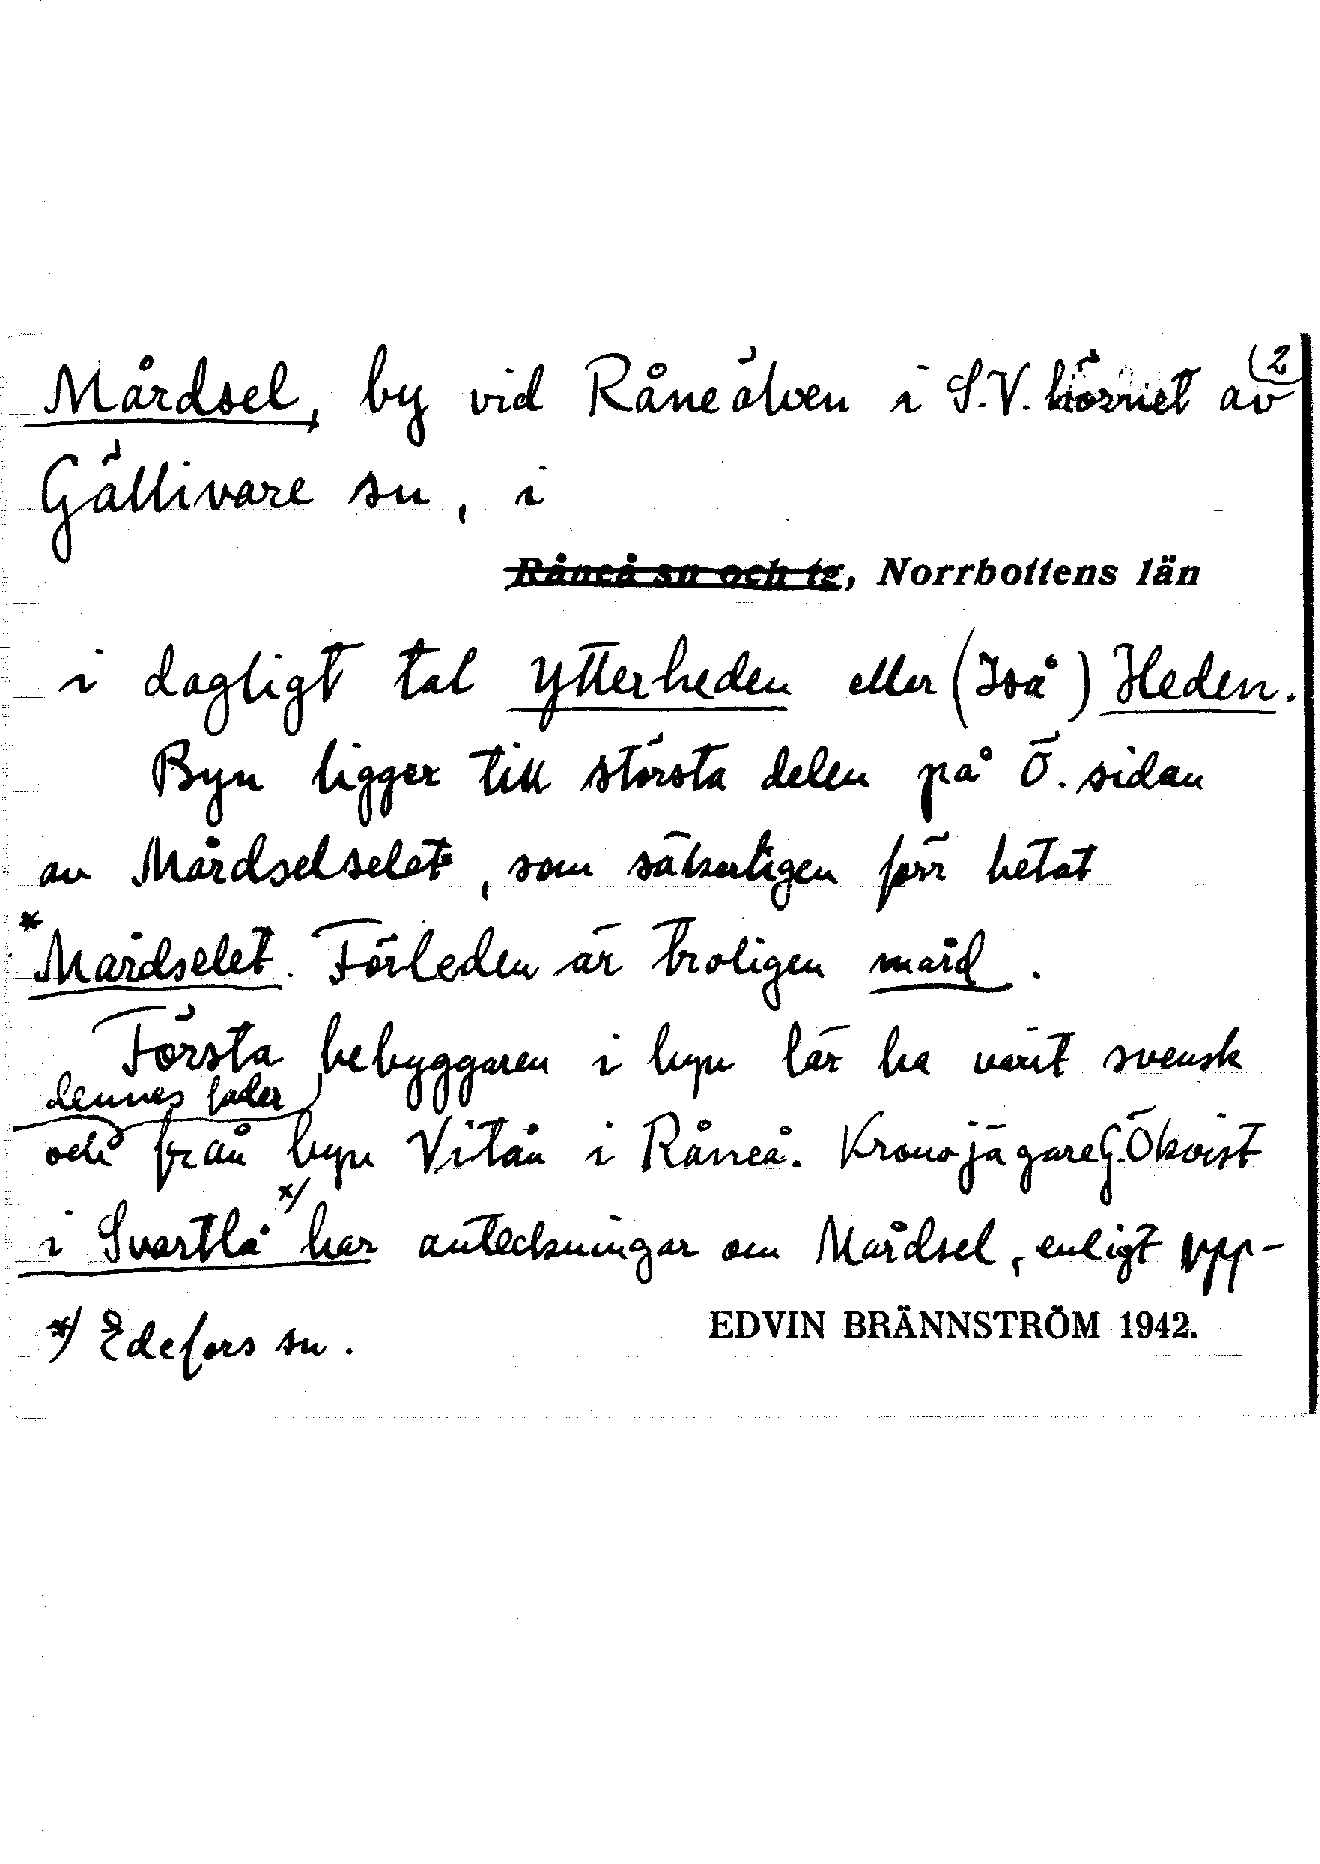 Mårdsel, by vid Råneälven i S.V. hörnet av (2
Gällivare sn, i
Råneå sn och tg, Norrbottens län
i dagligt tal Ytterheden eller (Iså) Heden.
Byn ligger till största delen på Ö. sidan
av Mårdselselet, som säkerligen förr hetat
*Mårdselet. Förleden är troligen mård.
Första bebyggaren i byn lär ha varit svensk
dennes fader
och från byn Vitån i Råneå. Kronojägare G. Ökvist
i Svartlå x/ har anteckningar om Mårdsel, enligt upp-
x/ Edefors sn.
EDVIN BRÄNNSTRÖM 1942.